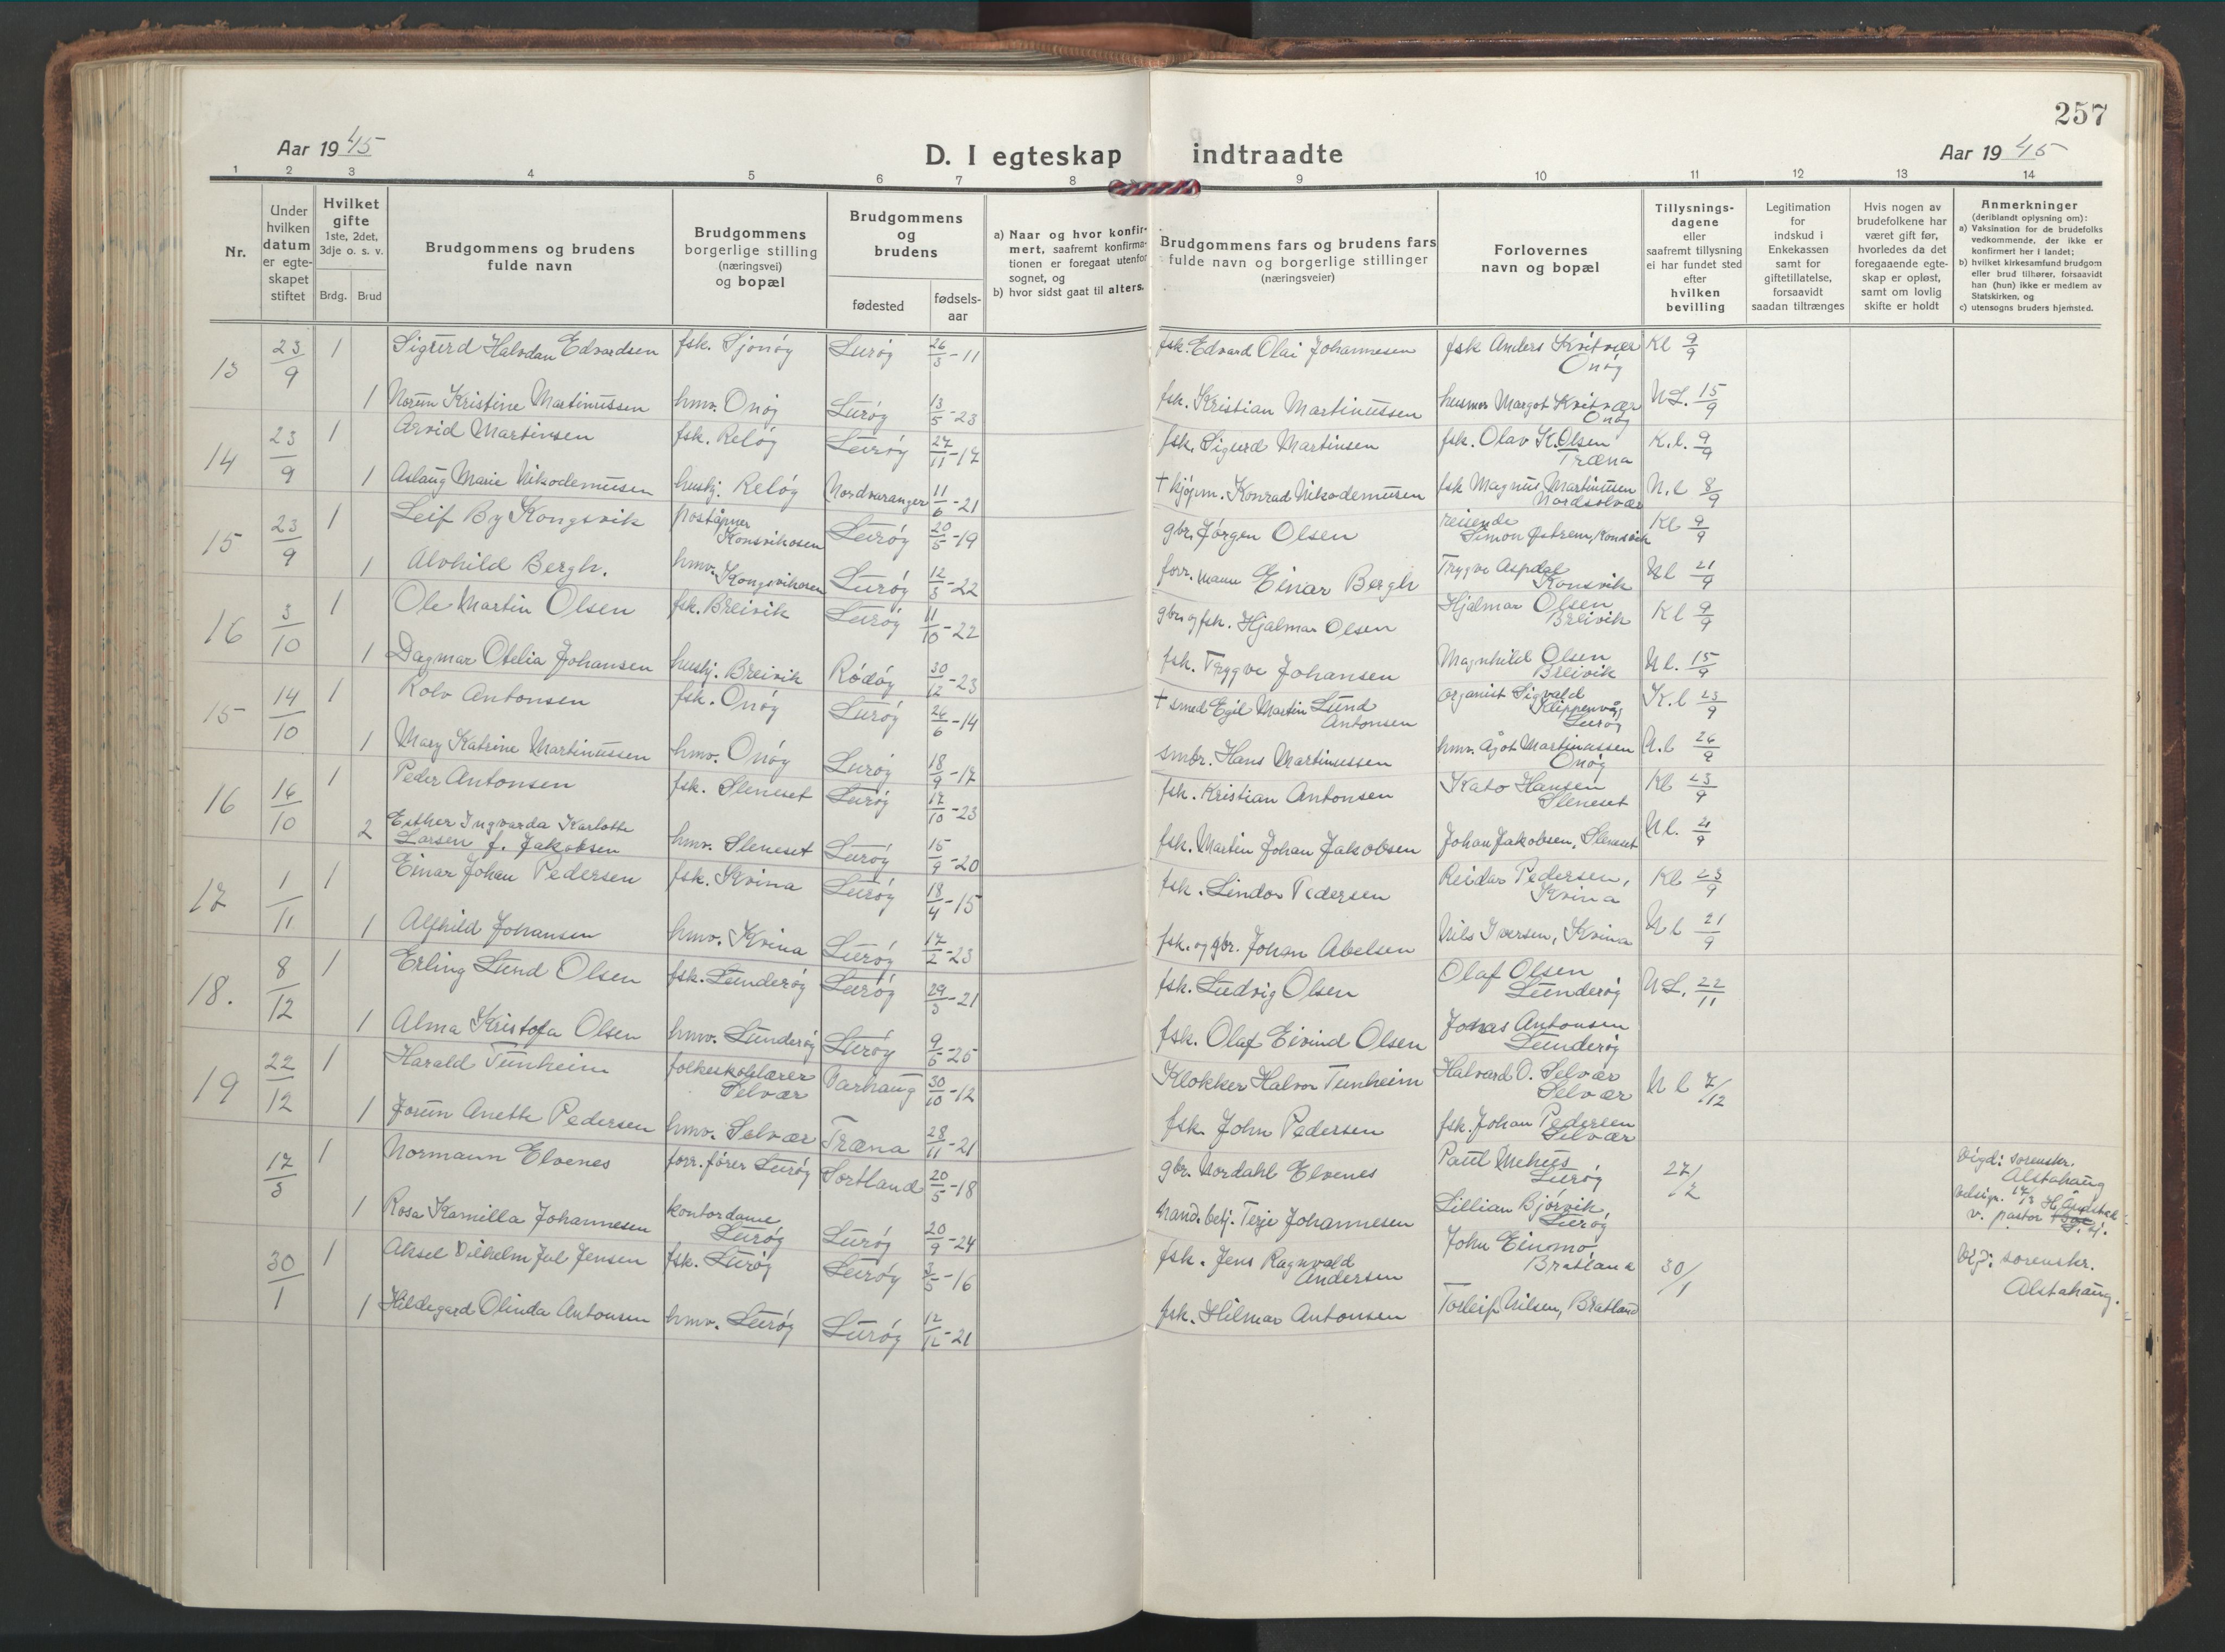 257
Aar 1945
D. I egteskap indtraadte
Aar 1945
1 2 3 4 5 6 7 8 9 10 11 12 13 14
Nr.
Under hvilken datum er egteskapet stiftet
Hvilket gifte 1ste, 2det, 3dje o. s. v.
Brdg. Brud
Brudgommens og brudens fulde navn
Brudgommens borgerlige stilling (næringsvei) og bopæl
Brudgommens og brudens
fødested
fødsels-aar
a) Naar og hvor konfirmert, saafremt konfirmationen er foregaat utenfor sognet, og
b) hvor sidst gaat til alters.
Brudgommens fars og brudens fars fulde navn og borgerlige stillinger (næringsveier)
Forlovernes navn og bopæl
Tillysnings-dagene eller saafremt tillysning ei har fundet sted efter hvilken bevilling
Legitimation for indskud i Enkekassen samt for giftetillatelse, forsaavidt saadan tiltrænges
Hvis nogen av brudefolkene har været gift før, hvorledes da det foregaaende egteskap er opløst, samt om lovlig skifte er holdt
Anmerkninger (deriblandt oplysning om):
a) Vaksination for de brudefolks vedkommende, der ikke er konfirmert her i landet;
b) hvilket kirkesamfund brudgom eller brud tilhører, forsaavidt han (hun) ikke er medlem av Statskirken, og
c) utensogns bruders hjemsted.
13 23/9 1 Sigurd Halvdan Edvardsen fsk. Sjonøy Lurøy 26/3-11 fsk. Edvard Olai Johannesen fsk Anders Kvitvær Onøy Kl 9/9
1 Norun Kristine Martinussen hmv. Onøy Lurøy 13/5-23 fsk. Kristian Martinussen husmor Margot Kvitvær Onøy N.L. 15/9
14 23/9 1 Arvid Martinsen fsk. Reløy Lurøy 27/11-17 fsk. Sigurd Martinsen fsk. Olav K. Olsen Træna K.l. 9/9
1 Aslaug Marie Nikodemusen hushj. Reløy Nordvaranger 11/6-21 † kjøpm. Konrad Nikodemusen fsk Magnus Martinusen Nordsolvær N.l 8/9
15 23/9 1 Leif By Kongsvik poståpner Konsvikosen Lurøy 20/5-19 gbr. Jørgen Olsen reisende Simon Østrem, Konsvik Kl 9/9
1 Alvhild Bergh. hmv. Kongsvikosen Lurøy 12/3-22 forr. mann Einar Bergh Trygve Aspdal Konsvik Nl 21/9
16 3/10 1 Ole Martin Olsen fsk. Breivik Lurøy 11/10-22 gbr. og fsk. Hjalmar Olsen Hjalmar Olsen Breivik Kl 9/9
1 Dagmar Otelia Johansen hushj. Breivik Rødøy 30/12-23 fsk. Trygve Johansen Magnhild Olsen Breivik Nl. 15/9
15 14/10 1 Rolv Antonsen fsk. Onøy Lurøy 26/6-14 † smed Egil Martin Lund Antonsen organist Sigvald Klippenvåg Lurøy K.l 23/9
1 Mary Katrine Martinussen hmv. Onøy Lurøy 18/9-17 smbr. Hans Martinussen hmv. Ågot Martinussen Onøy N.l 26/9
16 16/10 1 Peder Antonsen fsk. Sleneset Lurøy 17/10-23 fsk. Kristian Antonsen Kato Hansen Sleneset Kl 23/9
2 Esther Ingvarda Karlotte Larsen f. Jakobsen hmv. Sleneset Lurøy 15/9-20 fsk. Martin Johan Jakobsen Johan Jakobsen, Sleneset Nl. 21/9
17 1/11 1 Einar Johan Pedersen fsk. Kvina Lurøy 18/4-15 fsk. Lindor Pedersen Reidar Pedersen, Kvina Kl 23/9
1 Alfhild Johansen hmv. Kvina Lurøy 17/2-23 fsk. og gbr. Johan Abelsen Nils Iversen, Kvina Nl 21/9
18. 8/12 1 Erling Lund Olsen fsk. Lunderøy Lurøy 29/3-21 fsk. Ludvig Olsen Olaf Olsen Lunderøy N.L. 22/11
1 Alma Kristofa Olsen hmv. Lunderøy Lurøy 9/5-25 fsk. Olaf Eivind Olsen Jonas Antonsen Lunderøy
19 22/12 1 Harald Tunheim folkeskolelærer Selvær Varhaug 30/10-12 Klokker Halvor Tunheim Halvard O. Selvær Selvær N l 7/12
1 Jorun Anette Pedersen hmv. Selvær Træna 28/11-21 fsk. John Pedersen fsk. Johan Pedersen Selvær
17/3 1 Normann Elvenes forr. fører Lurøy Sortland 20/5-18 gbr. Nordahl Elvenes Paul Mehus Lurøy 27/2 Vigd: sorenskr. Alstahaug
1 Rosa Kamilla Johannesen kontordame Lurøy Lurøy 20/9-24 hand. betj. Terje Johannesen Lillian Bjørvik, Lurøy Velsign. 17/3 v. pastor
30/1 1 Aksel Vilhelm Jul Jensen fsk. Lurøy Lurøy 3/5-16 fsk. Jens Ragnvald Andersen John Einmo, Bratland 30/1 Vigd: sorenskr. Alstahaug.
1 Hildegard Olinda Antonsen hmv. Lurøy Lurøy 12/12-21 fsk. Hilmar Antonsen Torleif Nilsen, Bratland